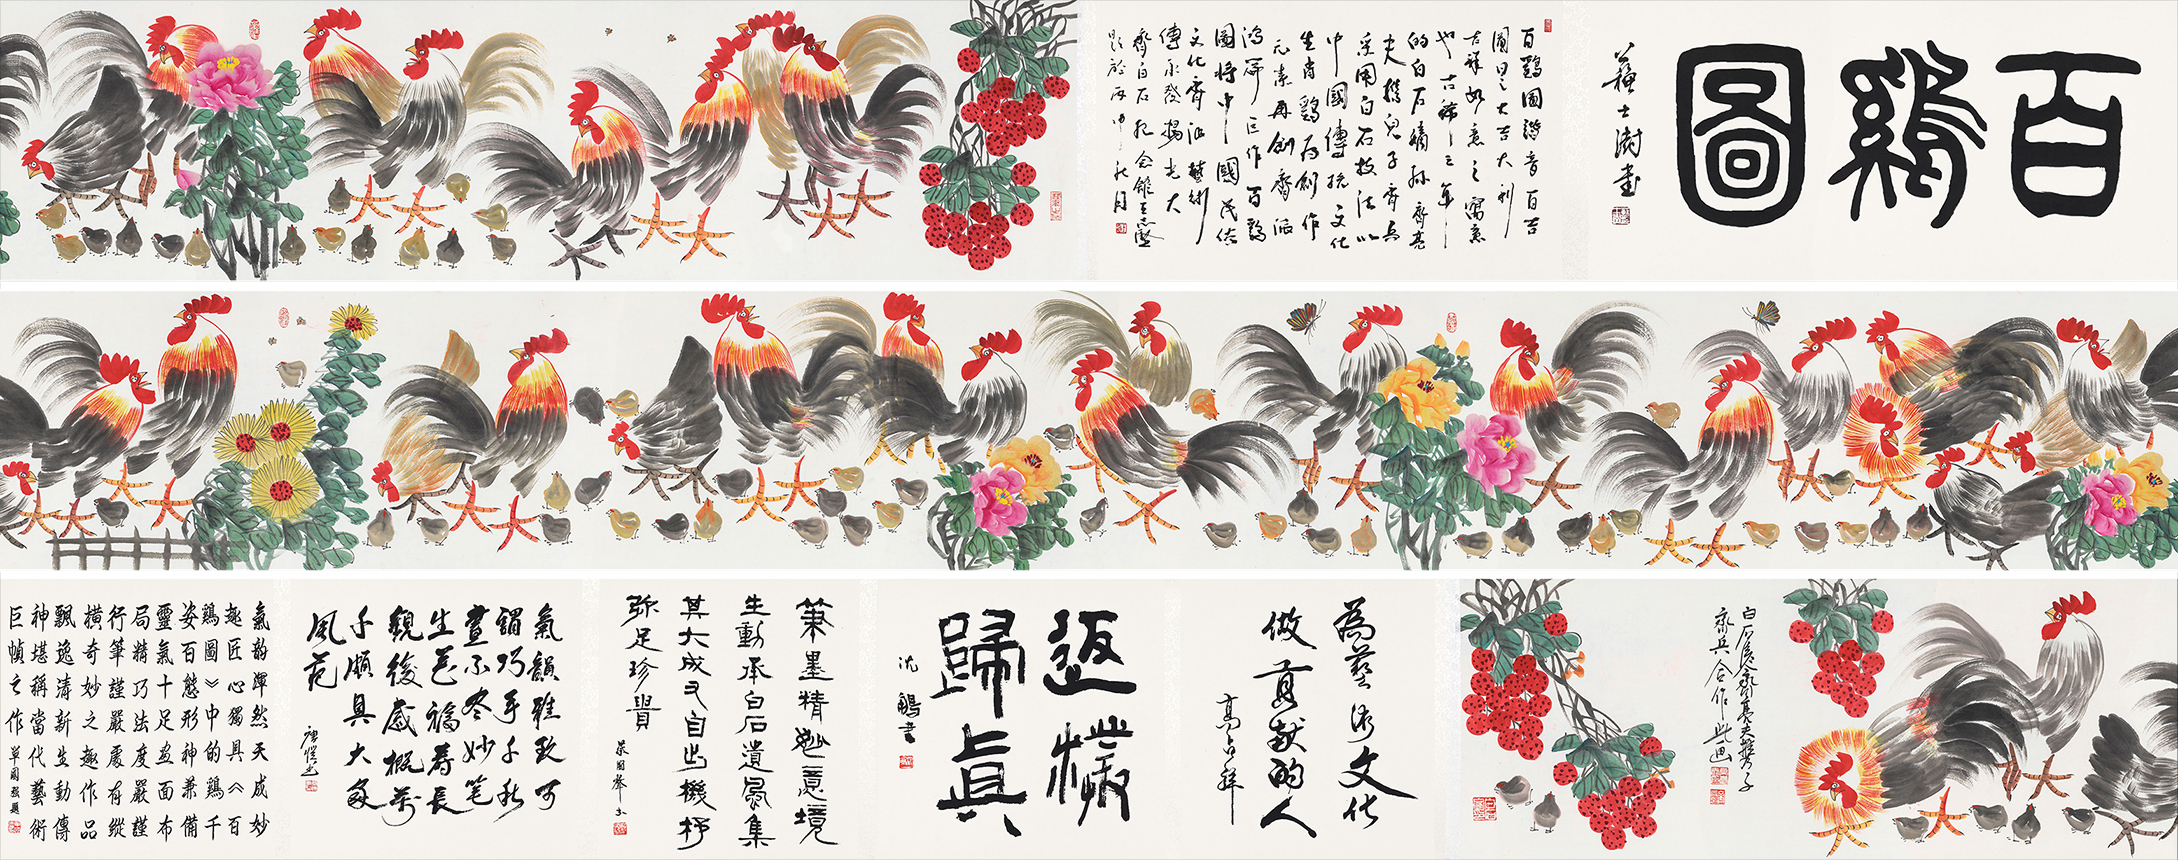 百鷄圖
蘇士澍書
百鷄圖諧音百吉
圖曰之大吉大利
吉祥如意之寓意
也古稀之年
的白石嫡孫齊亮
夫攜兒子齊兵
采用白石技法以
中國傳統文化
生肖鷄為創作
元素再創齊派
鴻篇巨作百鷄
圖將中國民俗
文化齊派藝術
傳承發揚光大
齊白石紀念館
題於丙申秋月
白石後裔齊亮夫攜子
齊兵合作此画
為藝術文化
做貢獻的人
高占祥
返樸
歸真
沈鵬書
筆墨精妙意境
生動承白石遺風集
其大成又自出機杼
弥足珍貴
氣韻雅致可
謂巧手千秋
畫不冬妙笔
生花福壽長
觀後感概萬
千頗具大家
風范
氣韵渾然天成妙
趣匠心獨具《百
鷄圖》中的鷄千
姿百態形神兼備
靈氣十足画面布
局精巧法度嚴謹
行筆謹嚴處有縱
橫奇妙之趣作品
飄逸清新生動傳
神堪稱當代藝術
巨幀之作 單國强題